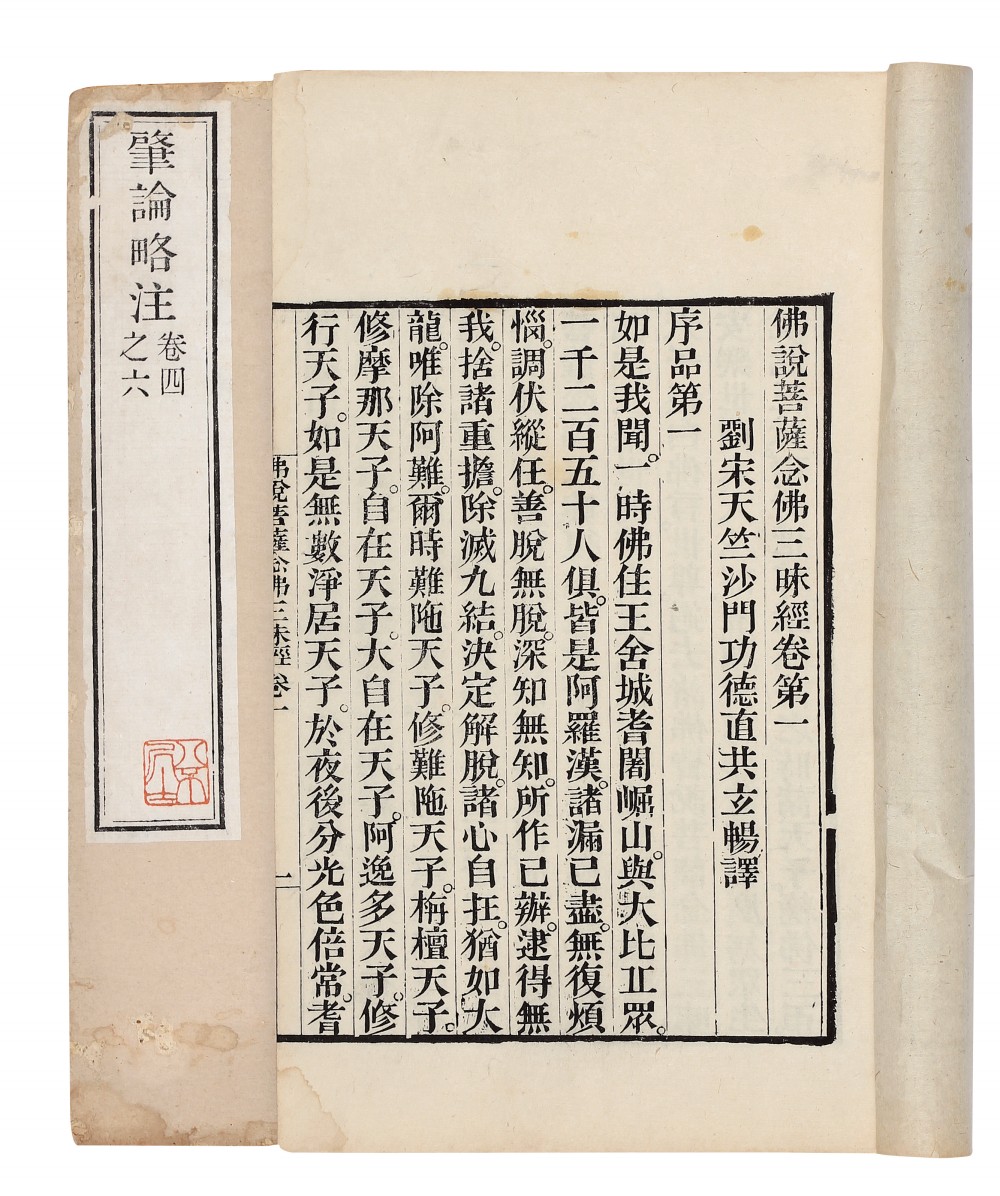 佛說菩薩念佛三昧經卷第一
劉宋天竺沙門功德直共玄暢譯
序品第一
如是我聞。一時佛住王舍城耆闍崛山。與大比丘眾。
一千二百五十人俱。皆是阿羅漢。諸漏已盡。無復煩
惱。調伏縱任。善脫無脫。深知無知。所作已辦。逮得無
我。捨諸重擔。除滅九結。決定解脫。諸心自在。猶如大
龍。唯除阿難。爾時難陁天子。修難陁天子。栴檀天子。
修摩那天子。自在天子。大自在天子。阿逸多天子。修
行天子。如是無數淨居天子。於夜後分光色倍常。耆
佛說菩薩念佛三昧經卷一
肇論略注
卷四
之六